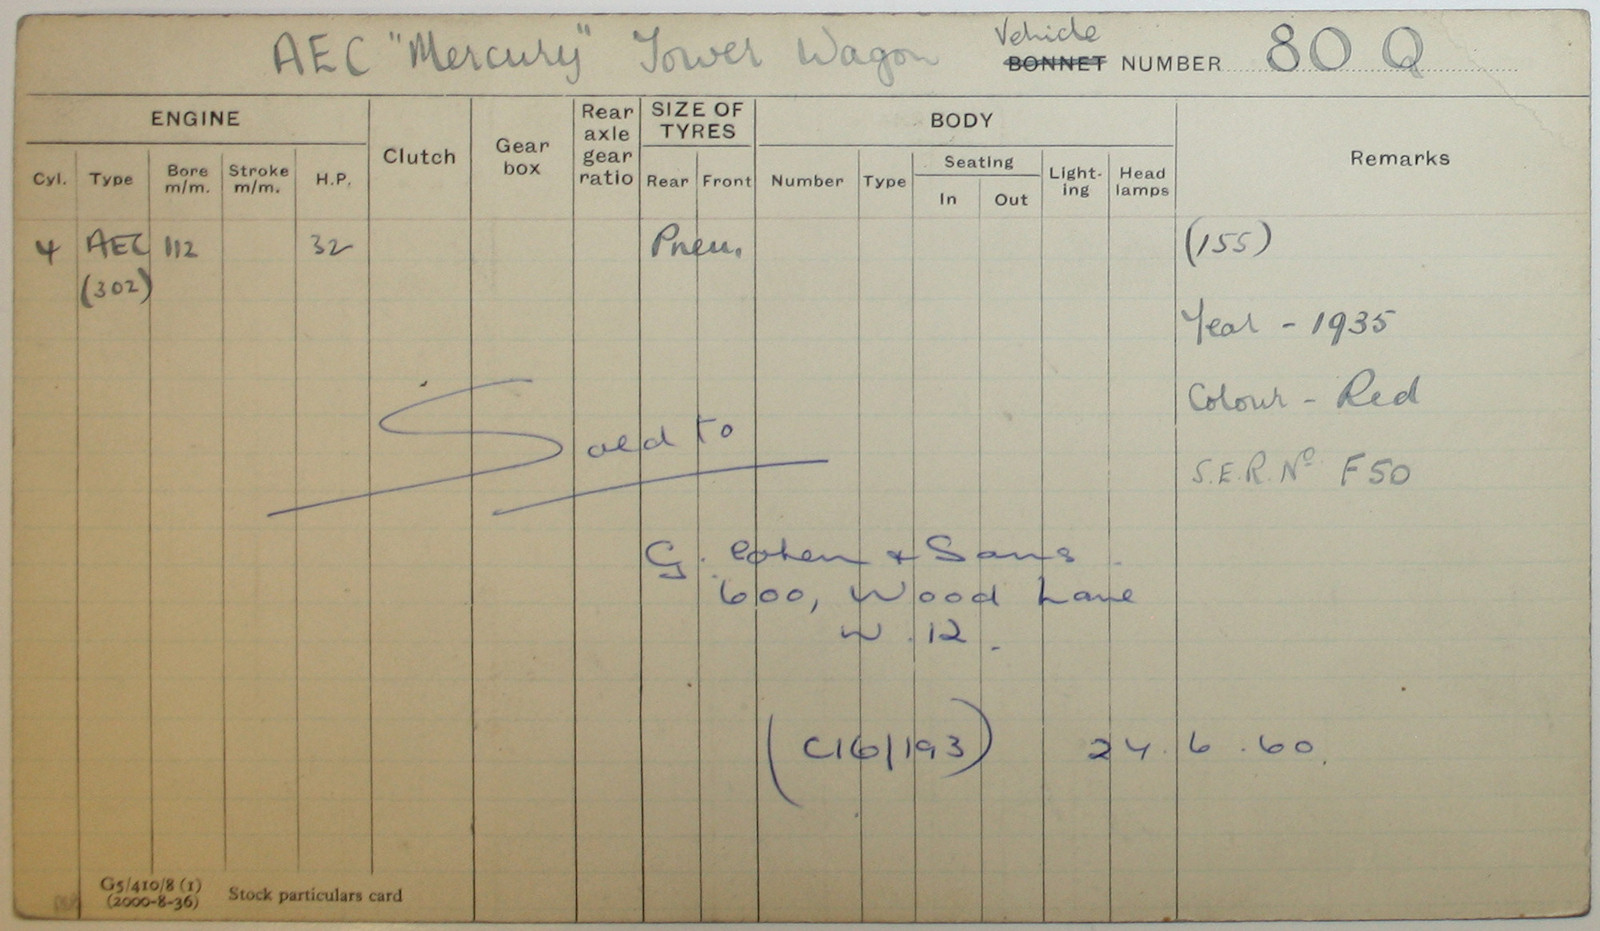 AEC "Mercury" Tower Wagon Vehicle BONNET NUMBER 80 Q
ENGINE
Clutch
Gear box
Rear axle gear ratio
SIZE OF TYRES
BODY
Remarks
Cyl. Type Bore m/m. Stroke m/m. H.P.
Rear Front
Number Type Seating In Out Lighting Head lamps
4 AEC 112 32 Pneu. (155)
(302)
Year - 1935
Colour - Red
S.E.R. No F50
Sold to
G. Cohen & Sons
600, Wood Lane
W. 12.
(C16/193) 24.6.60.
G5/410/8 (1)
(2000-8-36)
Stock particulars card